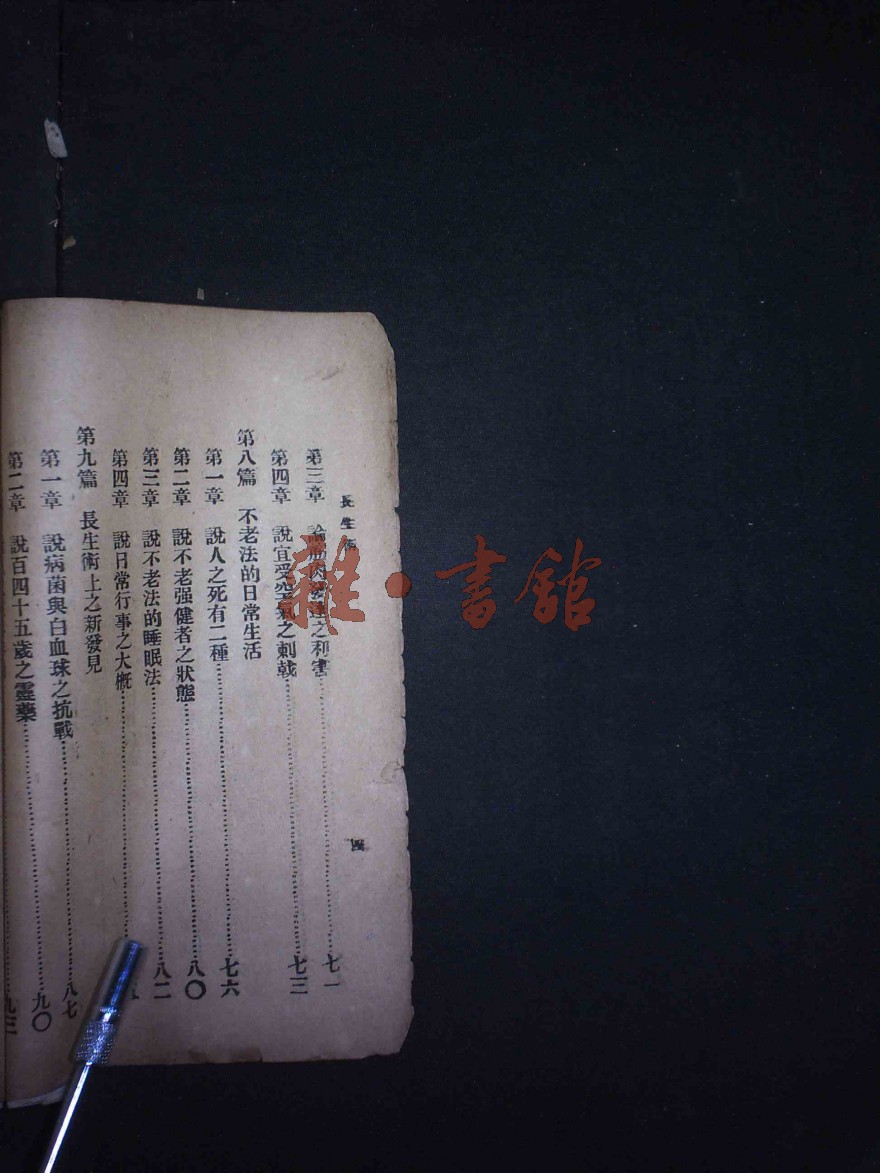 長生術
四
第三章 論筋肉發達之利害⋯⋯七一
第四章 說宜受空氣之刺戟⋯⋯七三
第八篇 不老法的日常生活
第一章 說人之死有二種⋯⋯七六
第二章 說不老强健者之狀態⋯⋯八〇
第三章 說不老法的睡眠法⋯⋯八二
第四章 說日常行事之大槪⋯⋯
第九篇 長生術上之新發見
第一章 說病菌與白血球之抗戰⋯⋯八七
第二章 說百四十五歲之靈藥⋯⋯九〇
九三
雜·書館